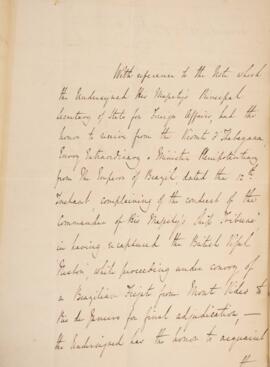 With reference to the Note which
the Undersigned His Majesty's Principal
Secretary of State for Foreign Affairs, had the
honor to receive from the Vicomt d'Itabayana
Envoy Extraordinary & Minister Plenipotentiary
from The Emperor of Brazil dated the 12th
Instant, complaining of the conduct of the
Commander of His Majesty's Ship "Tribune"
in having recaptured the British Vessel
while proceeding under convoy of
a Brazilian Frigate from Mont Video to
Rio de Janeiro for final adjudication,—
the Undersigned has the honor to acquaint